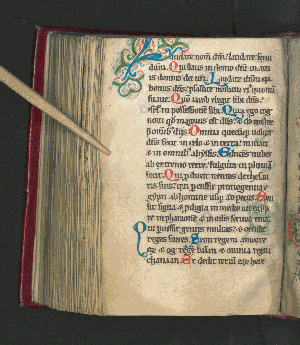 Laudate nom dni laudate serui
dnm. Qui statis in domo dni in atri
is domus dei nri. Laudate dnm qa
bonus dns psallite nomini ei quoni
suaue. Qm iacob elegit sibi dns
isrl in possessione sibi. Quia ego cog
noui qd magnus est dns & ds noster
omnib diis. Omnia quecuq uoluit
dns fecit in celo & in terra in mari
& in omnib abyssis. Educens nubes
ab extremo terre fulgura in pluuia
fecit. Qui producit uentos de thesau
ris suis qui percussit primogenita e
gypti ab homine usq ad pecus. Emi
sit signa & pdigia in medio tui egyp
te in pharaone & in oms seruos eius.
Qui percussit gentes multas & occidit
reges fortes. Seon regem amorre
or & og rege basan & omnia regna
chanaan. Et dedit terra eor here